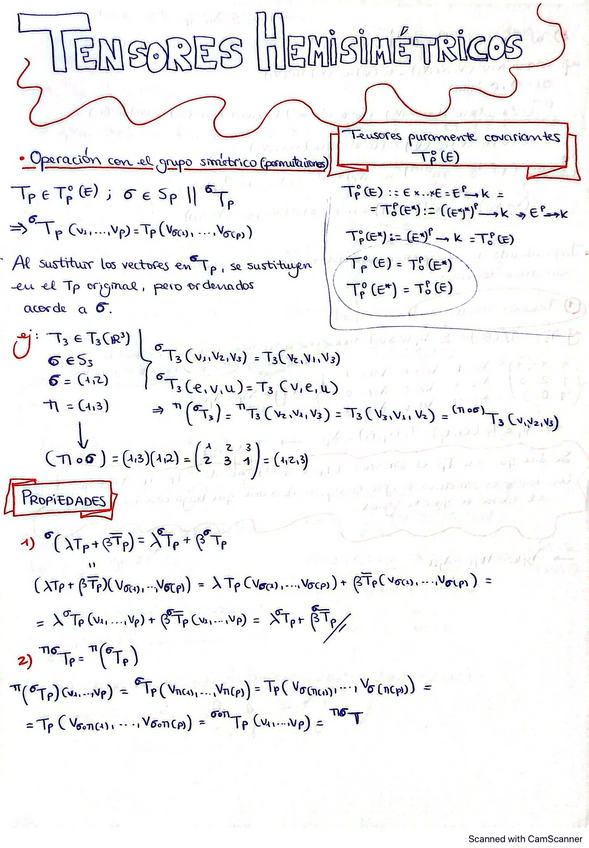 TENSORES HEMISIMÉTRICOS
Tensores puramente covariantes
T_p^0(E)
• Operación con el grupo simétrico (permutaciones)
T_p ∈ T_p^0(E) ; σ ∈ S_p || ^σT_p
⇒ ^σT_p (v_1, ..., v_p) = T_p(v_σ(1), ..., v_σ(p))
Al sustituir los vectores en ^σT_p, se sustituyen
en el T_p original, pero ordenados
acorde a σ.
T_p^0(E) := E x...xE = E^p → K =
= T_0^p(E*) := ((E*)*)^p → K ⇒ E^p → K
T_p^0(E*) := (E*)^p → K = T_0^p(E)
T_p^0(E) = T_0^p(E*)
T_p^0(E*) = T_0^p(E)
ej: T_3 ∈ T_3(ℝ^3)
σ ∈ S_3
σ = (1,2)
π = (1,3)
^σT_3(v_1,v_2,v_3) = T_3(v_2,v_1,v_3)
^σT_3(e,v,u) = T_3(v,e,u)
⇒ ^π(^σT_3) = ^πT_3(v_2,v_1,v_3) = T_3(v_3,v_1,v_2) = ^(π∘σ)T_3(v_1,v_2,v_3)
↓
(π∘σ) = (1,3)(1,2) = (1 2 3 / 2 3 1) = (1,2,3)
PROPIEDADES
1) ^σ(λT_p + βT̅_p) = λ^σT_p + β^σT_p
"
(λT_p + βT̅_p)(v_σ(1), ..., v_σ(p)) = λT_p(v_σ(1), ..., v_σ(p)) + βT̅_p(v_σ(1), ..., v_σ(p)) =
= λ^σT_p(v_1, ..., v_p) + β^σT̅_p(v_1, ..., v_p) = λ^σT_p + β^σT̅_p //
2) ^πσT_p = ^π(^σT_p)
^π(^σT_p)(v_1, ..., v_p) = ^σT_p(v_π(1), ..., v_π(p)) = T_p(v_σ(π(1)), ..., v_σ(π(p))) =
= T_p(v_σ∘π(1), ..., v_σ∘π(p)) = ^σ∘πT_p(v_1, ..., v_p) = ^πσT
Scanned with CamScanner